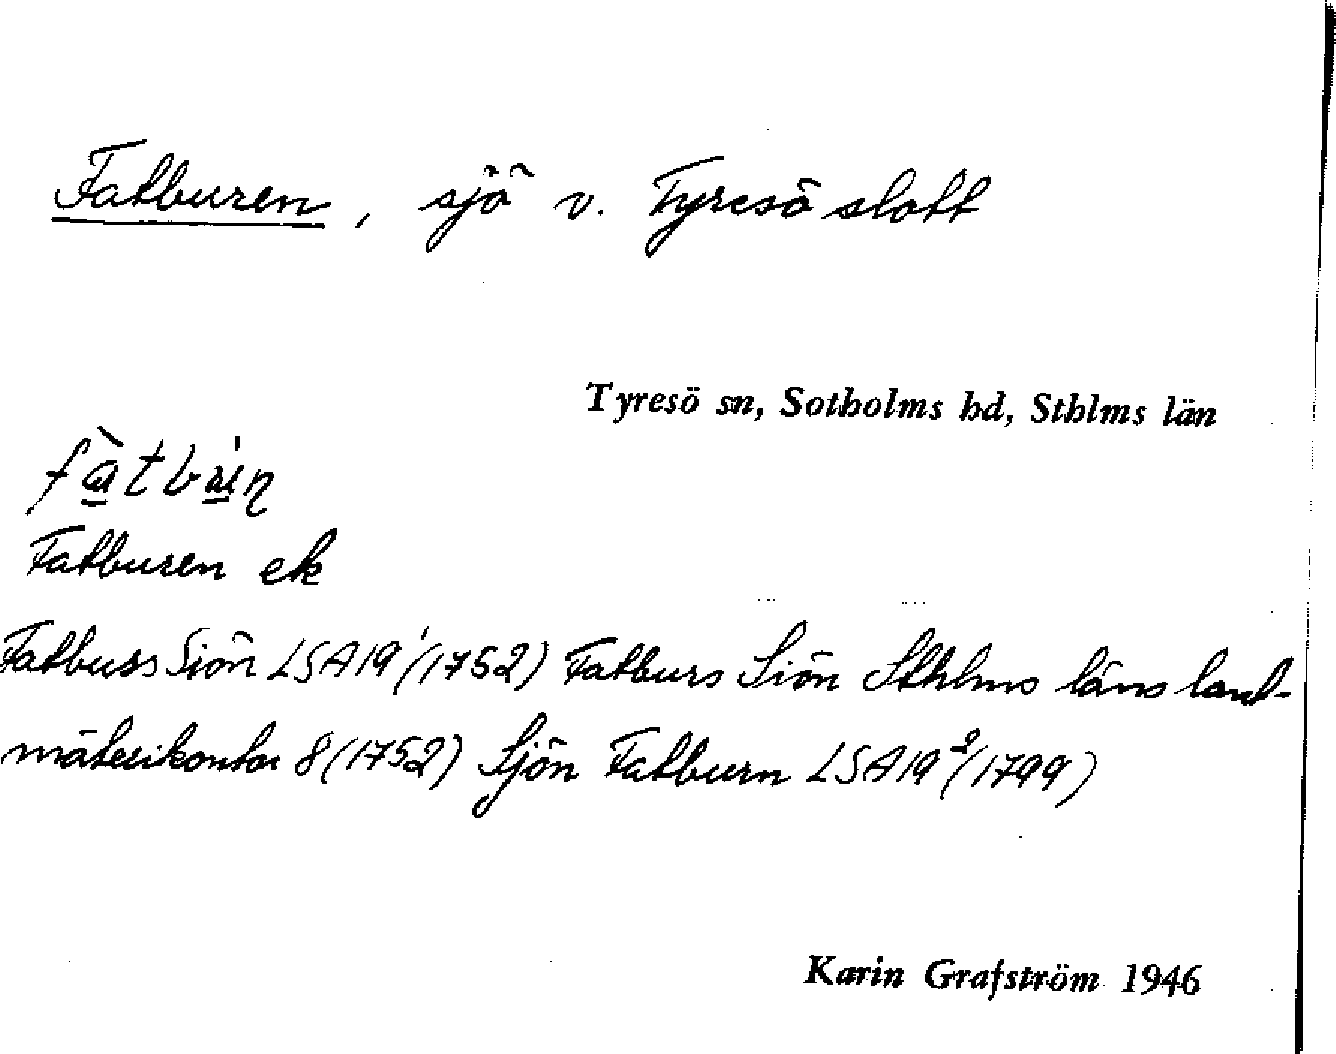 Fatburen, sjö v. Tyresö slott
Tyresö sn, Sotholms hd, Sthlms län
Fatburen ek
Fatburs Siön LSA19¹(1752) Fatburs Siön Sthlms läns lant-
mäterikontor 8(1752) Sjön Fatburn LSA19²(1799)
Karin Grafström 1946